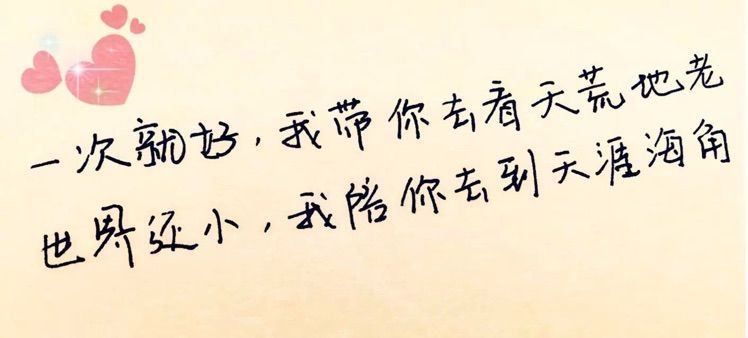 一次就好，我带你去看天荒地老
世界还小，我陪你去到天涯海角